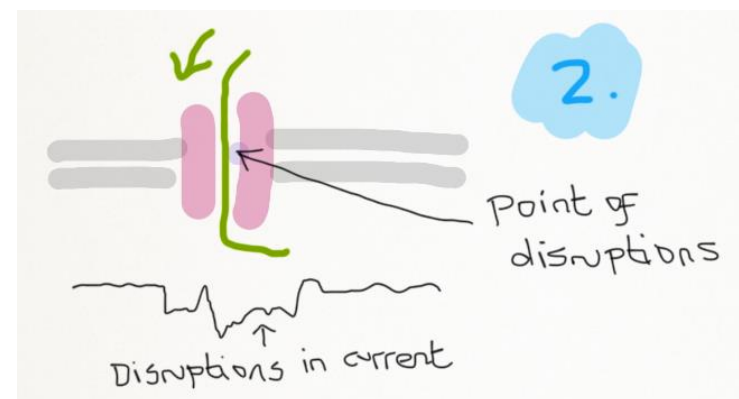 2.
Point of
disruptions
Disruptions in current